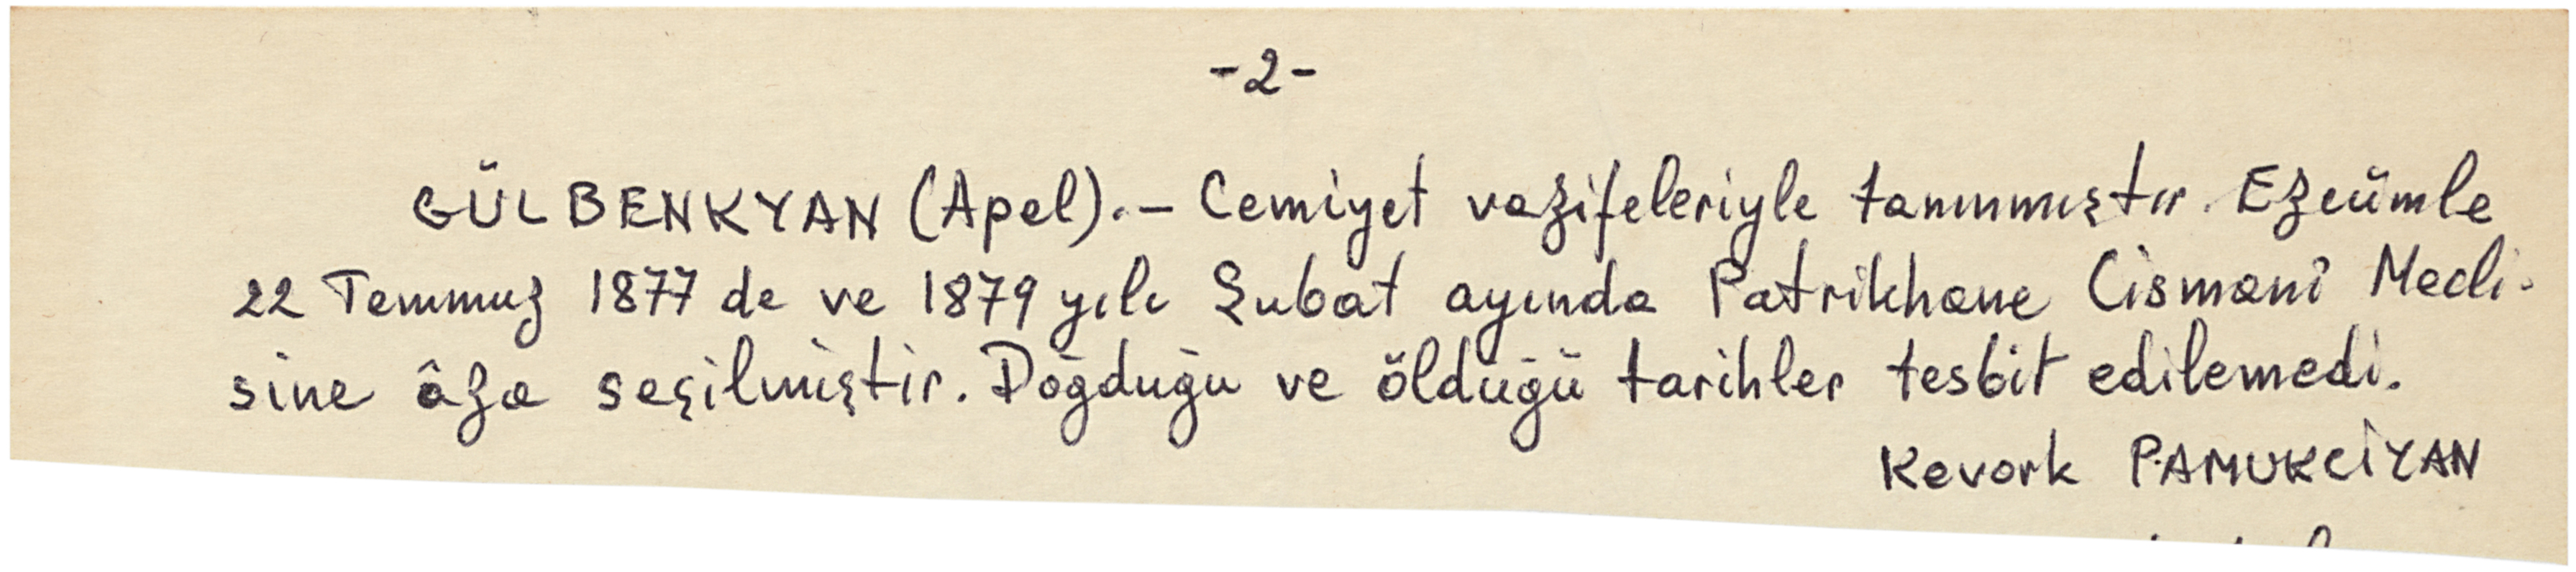 -2-
GÜLBENKYAN (Apel).- Cemiyet vazifeleriyle tanınmıştır. Ezcümle
22 Temmuz 1877 de ve 1879 yılı Şubat ayında Patrikhane Cismanî Mecli-
sine âza seçilmiştir. Doğduğu ve öldüğü tarihler tesbit edilemedi.
Kevork PAMUKCİYAN